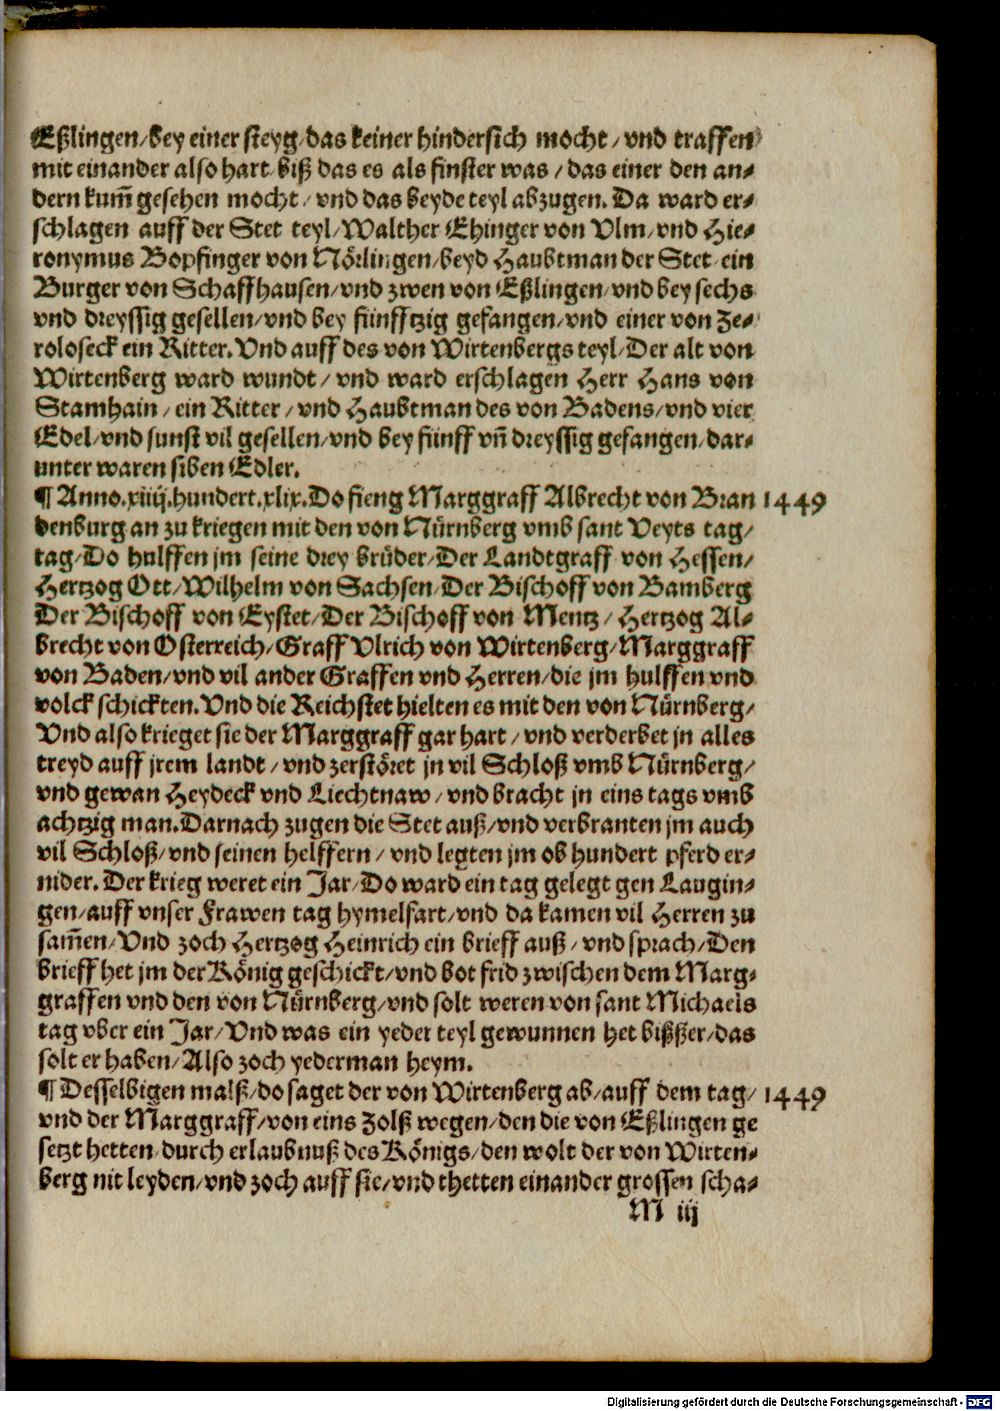 Eßlingen/bey einer steyg/das keiner hindersich mocht/vnd traffen
mit einander also hart biß das es als finster was/das einer den an⸗
dern kum̃ gesehen mocht/vnd das beyde teyl abzugen. Da ward er⸗
schlagen auff der Stet teyl/Walther Ehinger von Vlm/vnd Hie⸗
ronymus Bopfinger von Nörlingen/beyd Haubtman der Stet ein
Burger von Schaffhausen/vnd zwen von Eßlingen/vnd bey sechs
vnd dreyssig gesellen/vnd bey fünfftzig gefangen/vnd einer von Ze⸗
roloseck ein Ritter. Vnd auff des von Wirtenbergs teyl/Der alt von
Wirtenberg ward wundt/vnd ward erschlagen Herr Hans von
Stamhain/ein Ritter/vnd Haubtman des von Badens/vnd vier
Edel/vnd sunst vil gesellen/vnd bey fünff vñ dreyssig gefangen/dar⸗
unter waren siben Edler.
¶ Anno.xiiij.hundert.xlix.Do fieng Marggraff Albrecht von Bran 1449
denburg an zu kriegen mit den von Nürnberg vmb sant Veyts tag/
tag/Do hulffen jm seine drey brüder/Der Landtgraff von Hessen/
Hertzog Ott/Wilhelm von Sachsen/Der Bischoff von Bamberg
Der Bischoff von Eystet/Der Bischoff von Mentz/Hertzog Al⸗
brecht von Osterreich/Graff Vlrich von Wirtenberg/Marggraff
von Baden/vnd vil ander Graffen vnd Herren/die jm hulffen vnd
volck schickten. Vnd die Reichstet hielten es mit den von Nürnberg/
Vnd also krieget sie der Marggraff gar hart/vnd verderbet jn alles
treyd auff jrem landt/vnd zerstöret jn vil Schloß vmb Nürnberg/
vnd gewan Heydeck vnd Liechtnaw/vnd bracht jn eins tags vmb
achtzig man. Darnach zugen die Stet auß/vnd verbranten jm auch
vil Schloß/vnd seinen helffern/vnd legten jm ob hundert pferd er⸗
nider. Der krieg weret ein Jar/Do ward ein tag gelegt gen Laugin⸗
gen/auff vnser Frawen tag hymelfart/vnd da kamen vil Herren zu
sam̃en/Vnd zoch Hertzog Heinrich ein brieff auß/vnd sprach/Den
brieff het jm der König geschickt/vnd bot frid zwischen dem Marg⸗
graffen vnd den von Nürnberg/vnd solt weren von sant Michaels
tag vber ein Jar/Vnd was ein yeder teyl gewunnen het bißßer/das
solt er haben/Also zoch yederman heym.
¶ Desselbigen malß/do saget der von Wirtenberg ab/auff dem tag/ 1449
vnd der Marggraff/von eins Zolß wegen/den die von Eßlingen ge
setzt hetten durch erlaubnuß des Königs/den wolt der von Wirten⸗
berg nit leyden/vnd zoch auff sie/vnd thetten einander grossen scha⸗
M iij
Digitalisierung gefördert durch die Deutsche Forschungsgemeinschaft - DFG